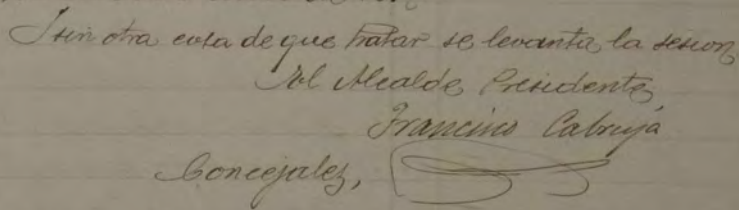 I sin otra cosa de que tratar se levanta la sesion
El Alcalde Presidente,
Francisco Cabruja
Concejales,